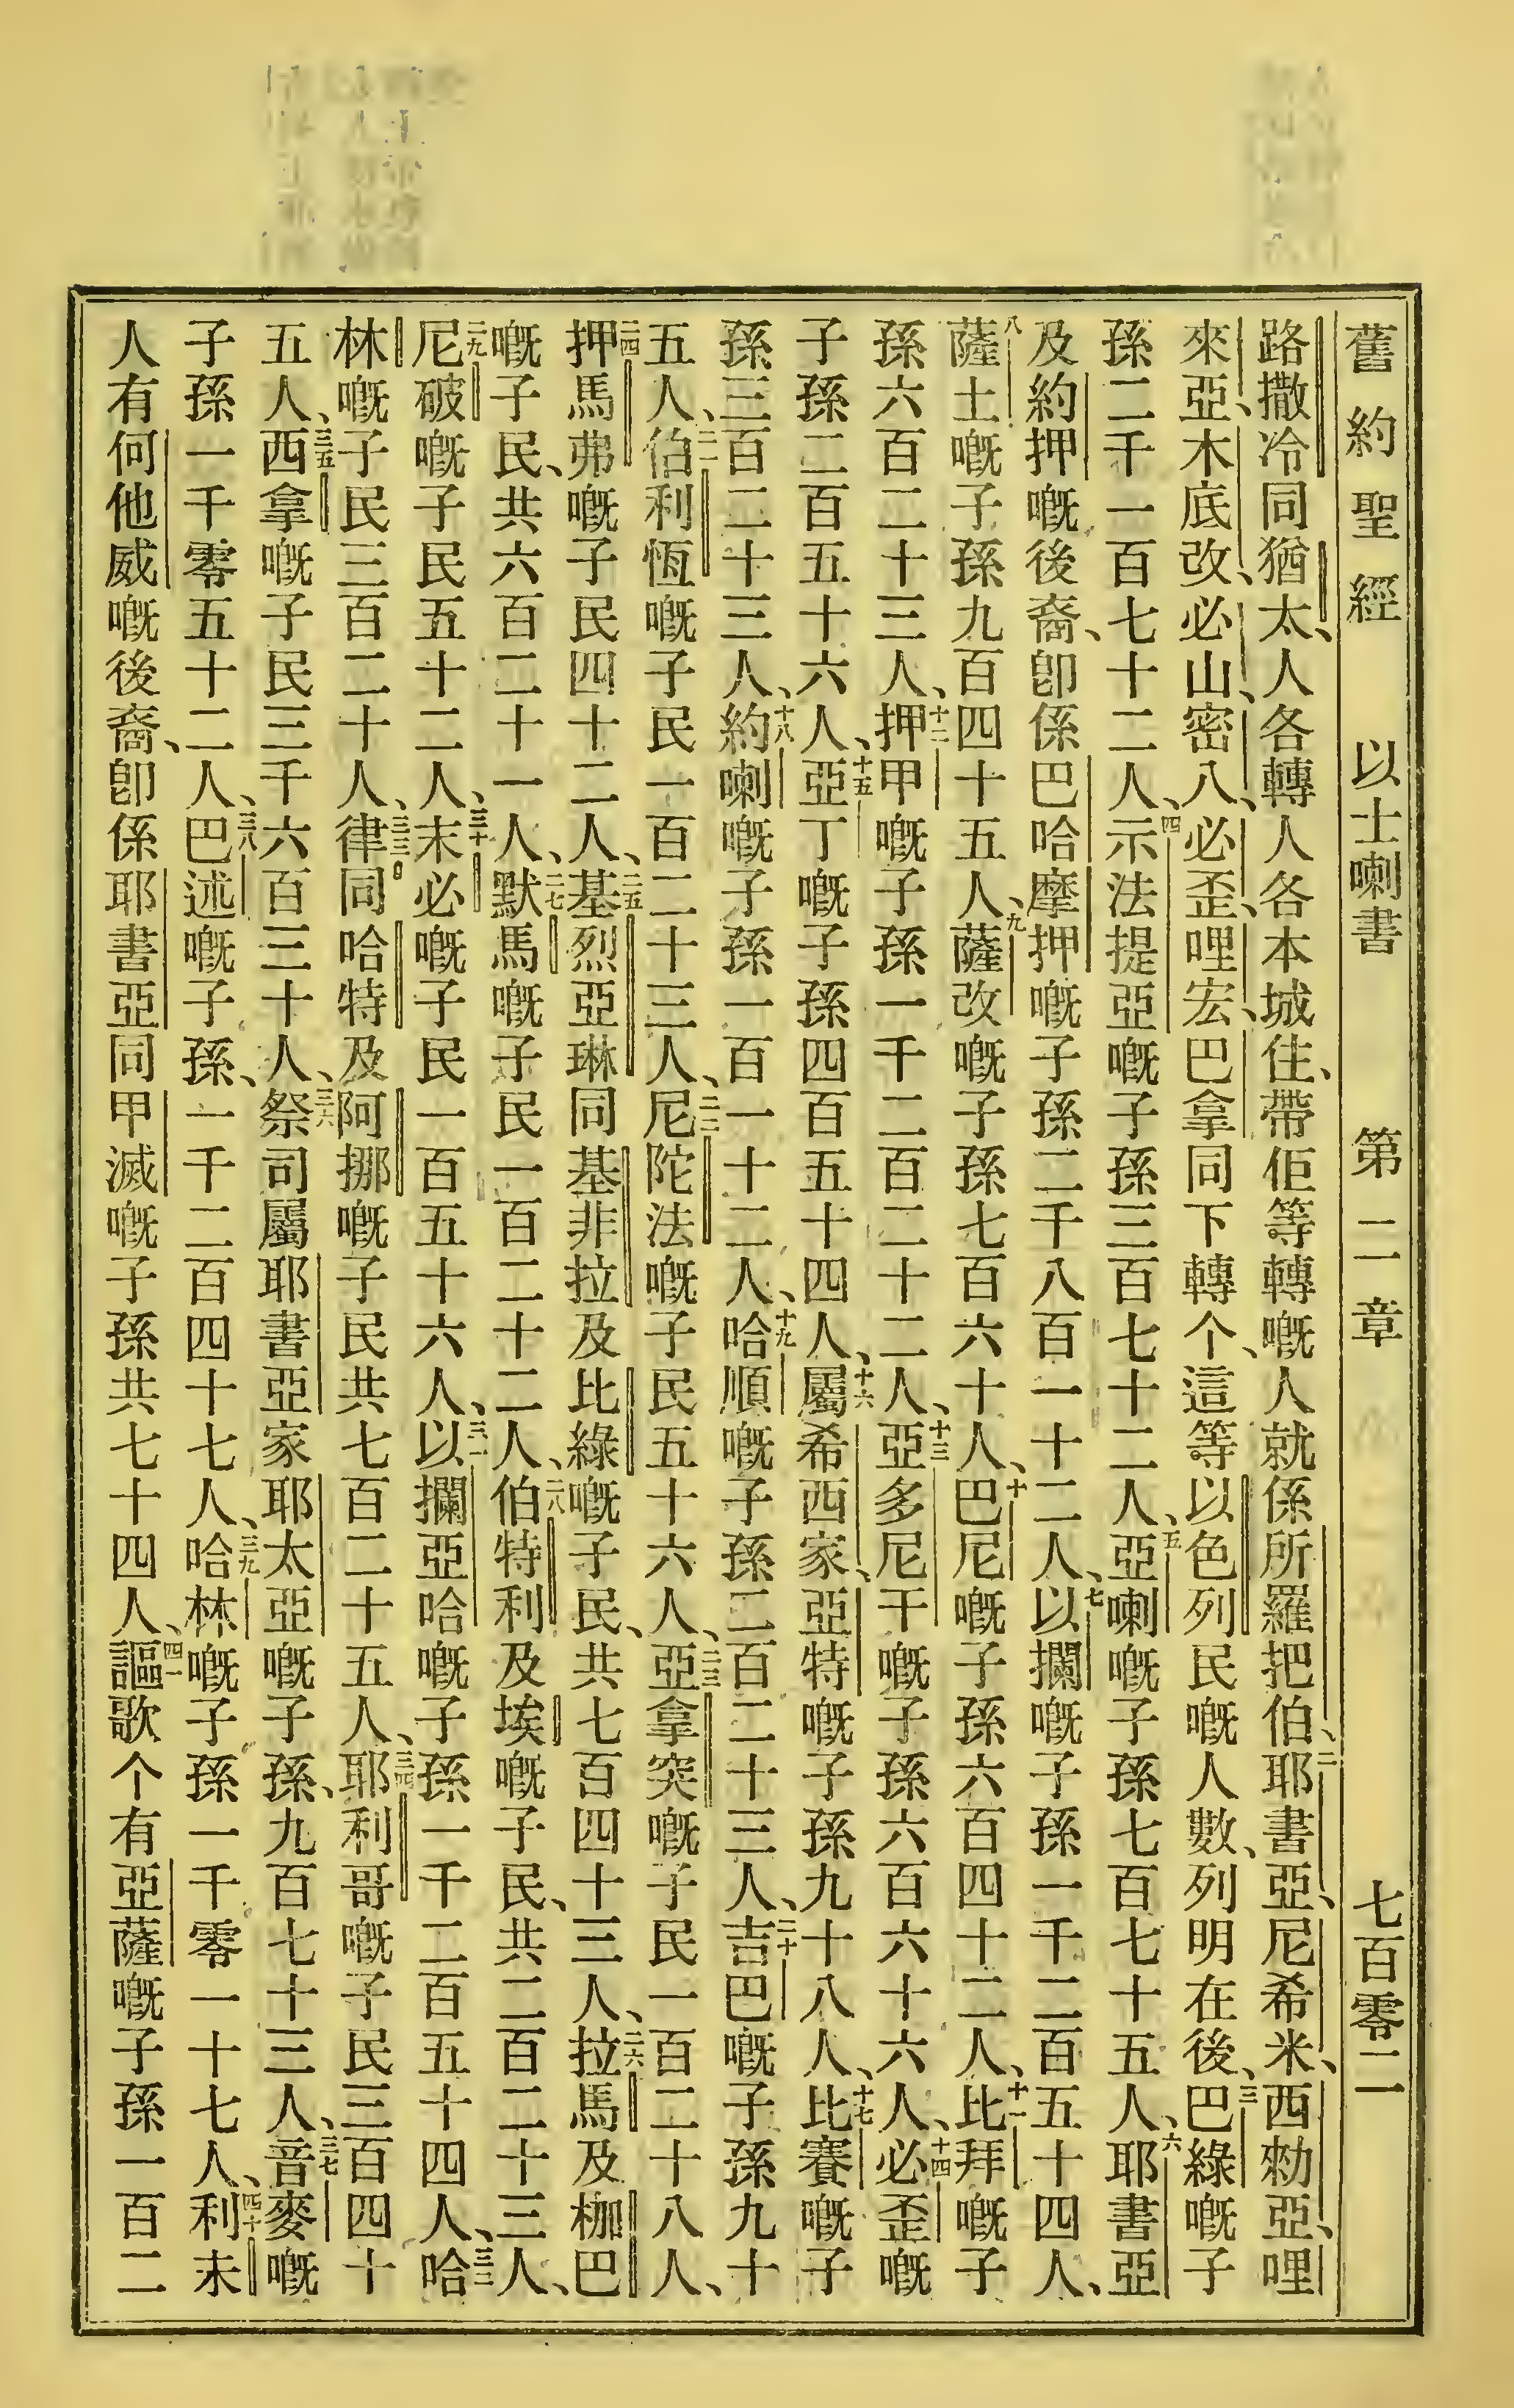 舊約聖經 以士喇書 第二章 七百零二
路撒冷同猶太、人各轉人各本城住、帶佢等轉嘅人就係所羅把伯、二耶書亞、尼希米、西勑亞、哩
來亞、木底改、必山、密八、必歪、哩宏、巴拿同下轉个、這等以色列民嘅人數、列明在後、三巴綠嘅子
孫二千一百七十二人、四示法提亞嘅子孫三百七十二人、五亞喇嘅子孫七百七十五人、六耶書亞
及約押嘅後裔、卽係巴哈摩押嘅子孫二千八百一十二人、七以攔嘅子孫一千二百五十四人、
八薩土嘅子孫九百四十五人、九薩改嘅子孫七百六十人、十巴尼嘅子孫六百四十二人、十一比拜嘅子
孫六百二十三人、十二押甲嘅子孫一千二百二十二人、十三亞多尼干嘅子孫六百六十六人、十四必歪嘅
子孫二百五十六人、十五亞丁嘅子孫四百五十四人、十六屬希西家、亞特嘅子孫九十八人、十七比賽嘅子
孫三百二十三人、十八約喇嘅子孫一百一十二人、十九哈順嘅子孫二百二十三人、二十吉巴嘅子孫九十
五人、二一伯利恆嘅子民一百二十三人、二二尼陀法嘅子民五十六人、二三亞拿突嘅子民一百二十八人、
二四押馬弗嘅子民四十二人、二五基烈亞琳同基非拉及比綠嘅子民、共七百四十三人、二六拉馬及枷巴
嘅子民、共六百二十一人、二七默馬嘅子民一百二十二人、二八伯特利及埃嘅子民、共二百二十三人、
二九尼破嘅子民五十二人、三十末必嘅子民一百五十六人、三一以攔亞哈嘅子孫一千二百五十四人、三二哈
林嘅子民三百二十人、三三律同哈特及阿挪嘅子民共七百二十五人、三四耶利哥嘅子民三百四十
五人、三五西拿嘅子民三千六百三十人、三六祭司屬耶書亞家耶太亞嘅子孫、九百七十三人、三七音麥嘅
子孫一千零五十二人、三八巴述嘅子孫、一千二百四十七人、三九哈林嘅子孫一千零一十七人、四十利未
人有何他威嘅後裔、卽係耶書亞同甲滅嘅子孫共七十四人、四一謳歌个有亞薩嘅子孫一百二